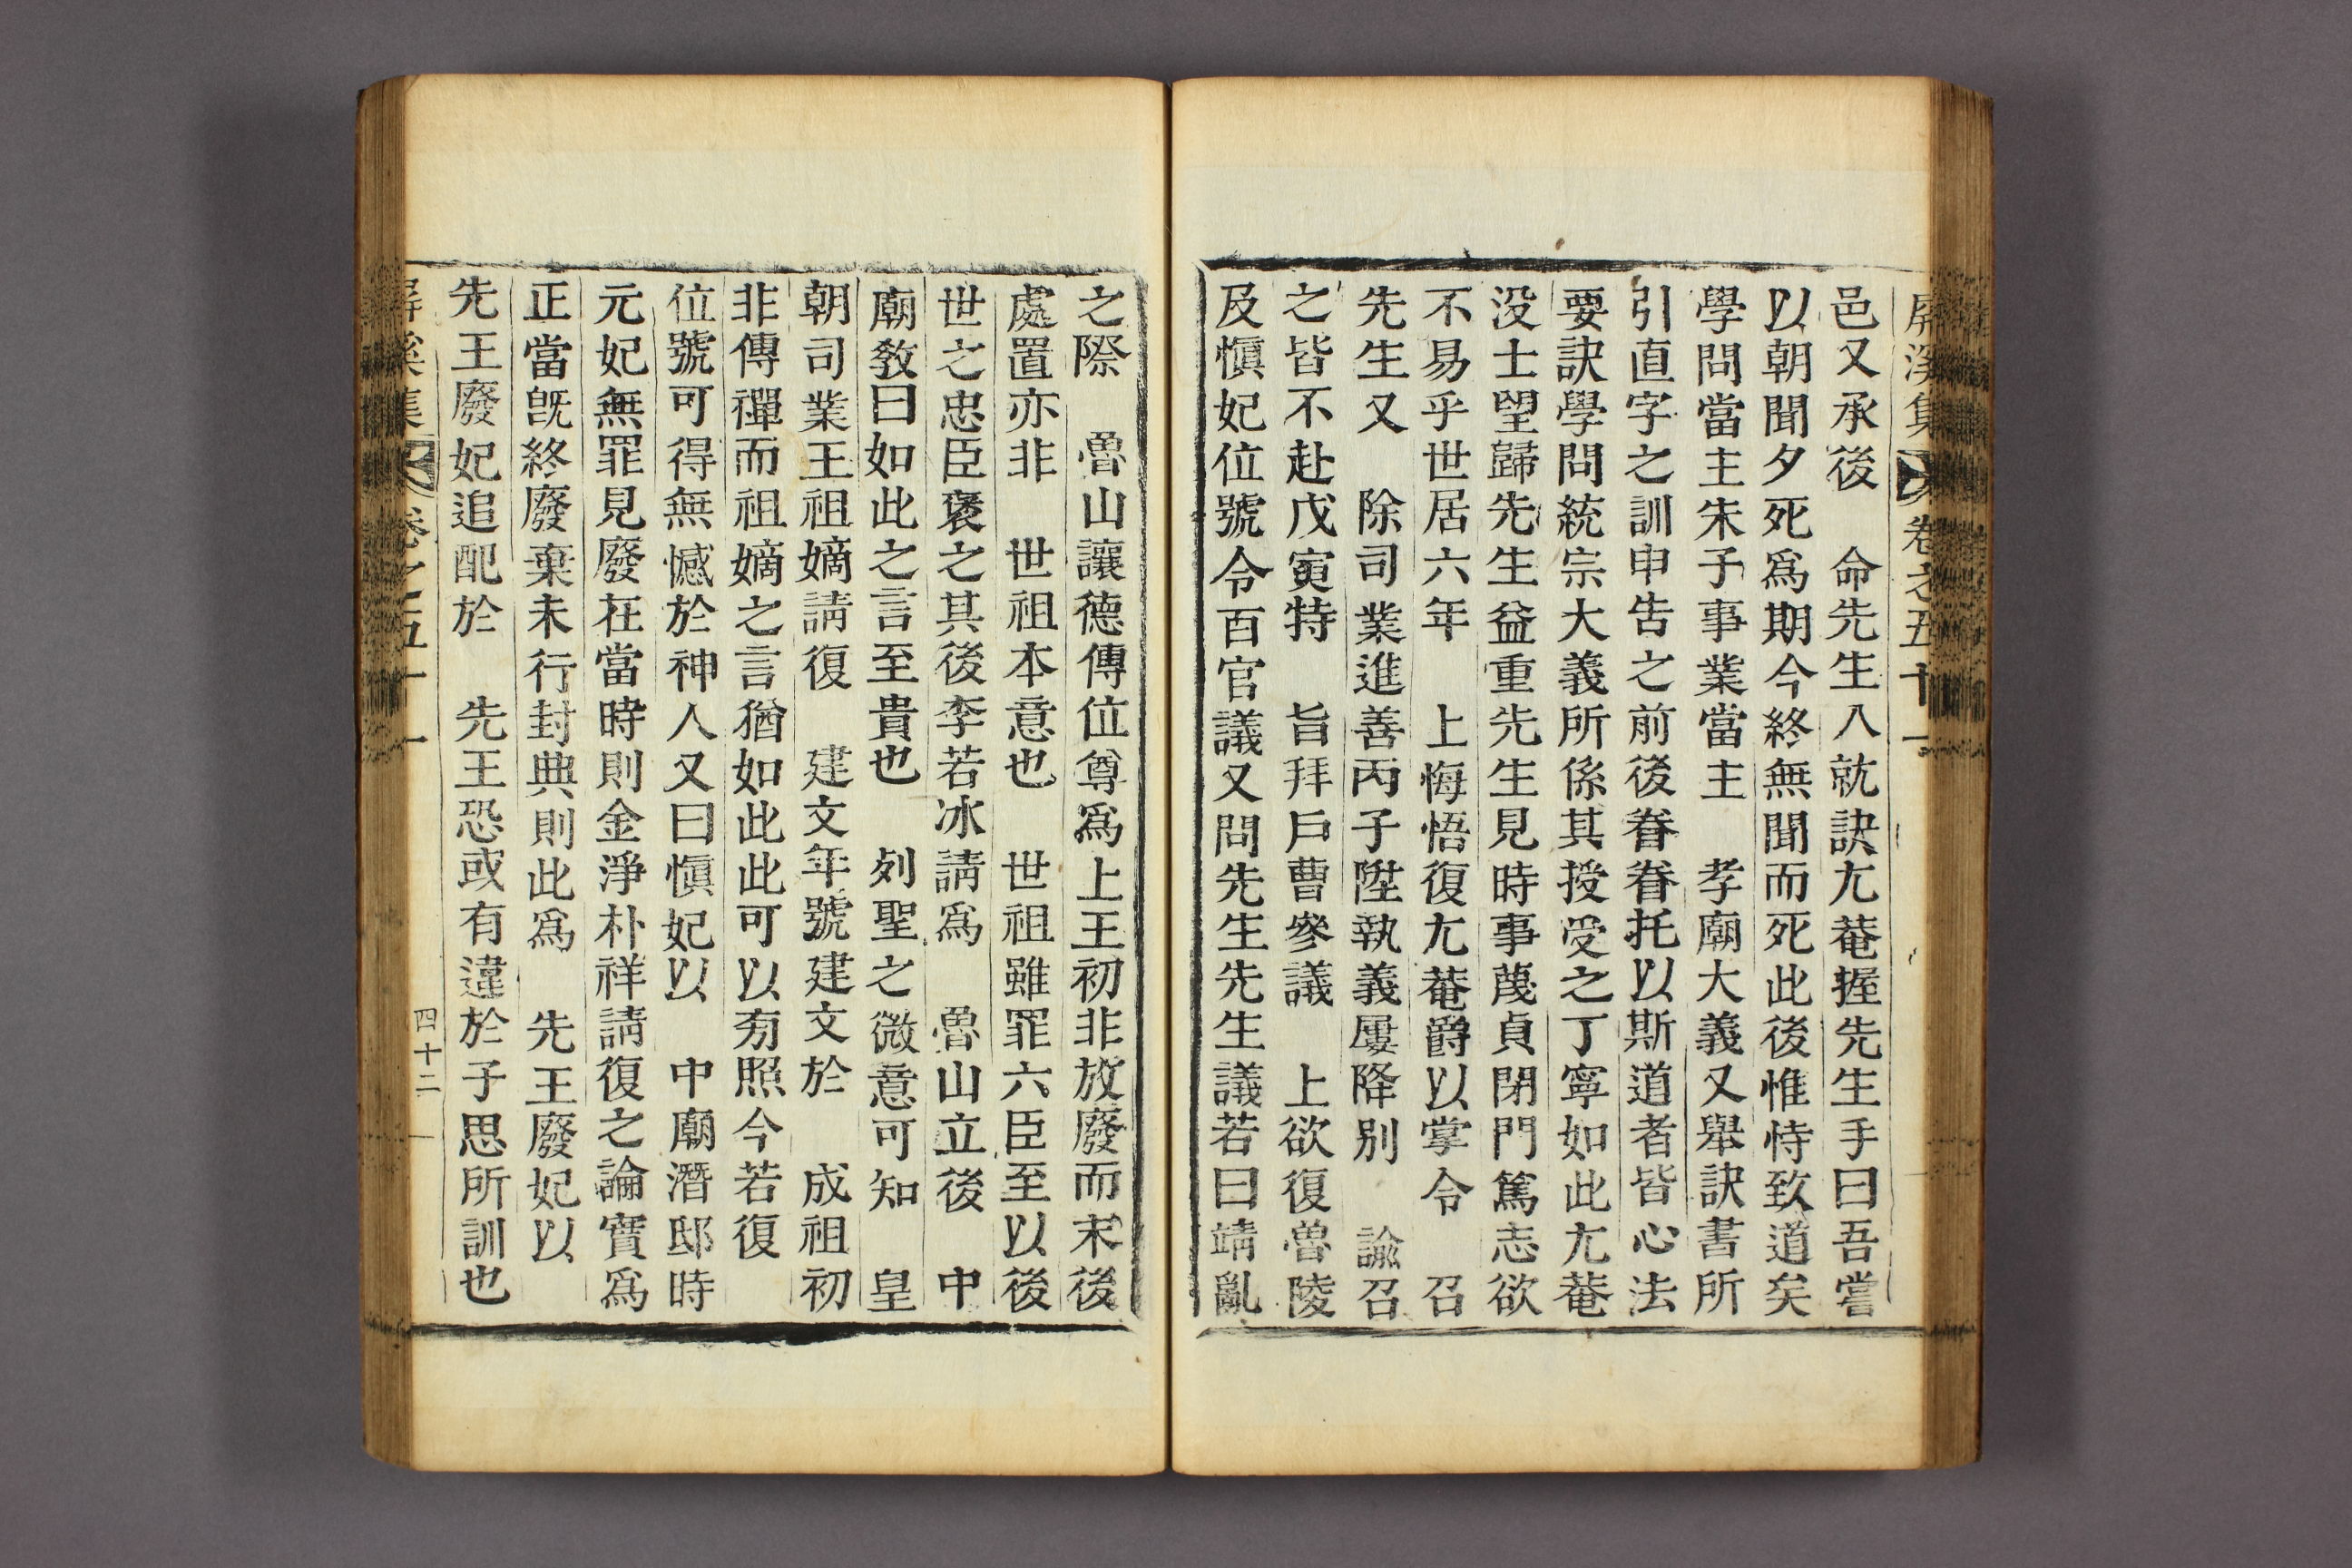 屛溪集 卷之五十一
邑又承後 命先生入就訣尤菴握先生手曰吾嘗
以朝聞夕死爲期今終無聞而死此後惟恃致道矣
學問當主朱子事業當主 孝廟大義又舉訣書所
引直字之訓申告之前後眷眷托以斯道者皆心法
要訣學問統宗大義所係其授受之丁寧如此尤菴
没士望歸先生益重先生見時事蔑貞閉門篤志欲
不易乎世居六年 上悔悟復尤菴爵以掌令 召
先生又 除司業進善丙子陞執義屢降别 諭召
之皆不赴戊寅特 旨拜戶曹參議 上欲復魯陵
及愼妃位號令百官議又問先生先生議若曰靖亂
之際 魯山讓德傳位尊爲上王初非放廢而末後
處置亦非 世祖本意也 世祖雖罪六臣至以後
世之忠臣褒之其後李若冰請爲 魯山立後 中
廟敎曰如此之言至貴也 列聖之微意可知 皇
朝司業王祖嫡請復 建文年號建文於 成祖初
非傳禪而祖嫡之言猶如此此可以旁照今若復
位號可得無憾於神人又曰愼妃以 中廟潛邸時
元妃無罪見廢在當時則金淨朴祥請復之論實爲
正當旣終廢棄未行封典則此爲 先王廢妃以
先王廢妃追配於 先王恐或有違於子思所訓也
屛溪集 卷之五十一 四十二